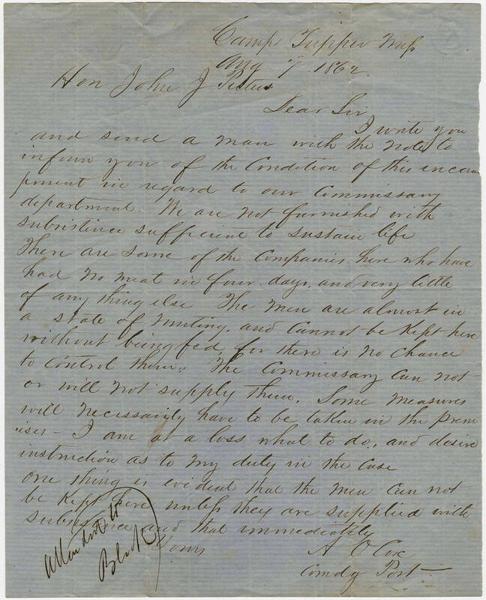 Camp Tupper Miss
Aug 7 1862
Hon John J Pettus
Dear Sir
I write you
and send a man with the note to
inform you of the Condition of this incam
pment in regard to our Commissary
department. We are not furnished with
subsistence sufficient to sustain life
There are some of the Companies here who have
had no meat in four days, and very little
of any thing else The men are almost in
a state of mutiny, and cannot be kept here
without being fed, for there is no chance
to control them. The Commissary Can not
or will not supply them. Some measures
will necessarily have to be taken in the prem
ises - I am at a loss what to do, and desire
instruction as to my duty in the Case
One thing is evident that the men Can not
be kept here unless they are supplied with
subsistence and that immediately
Yours A O Cox
Comdg Post
to